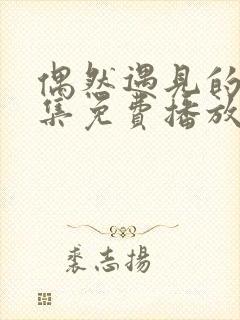 偶然遇见的
集免費播放
裘志揚